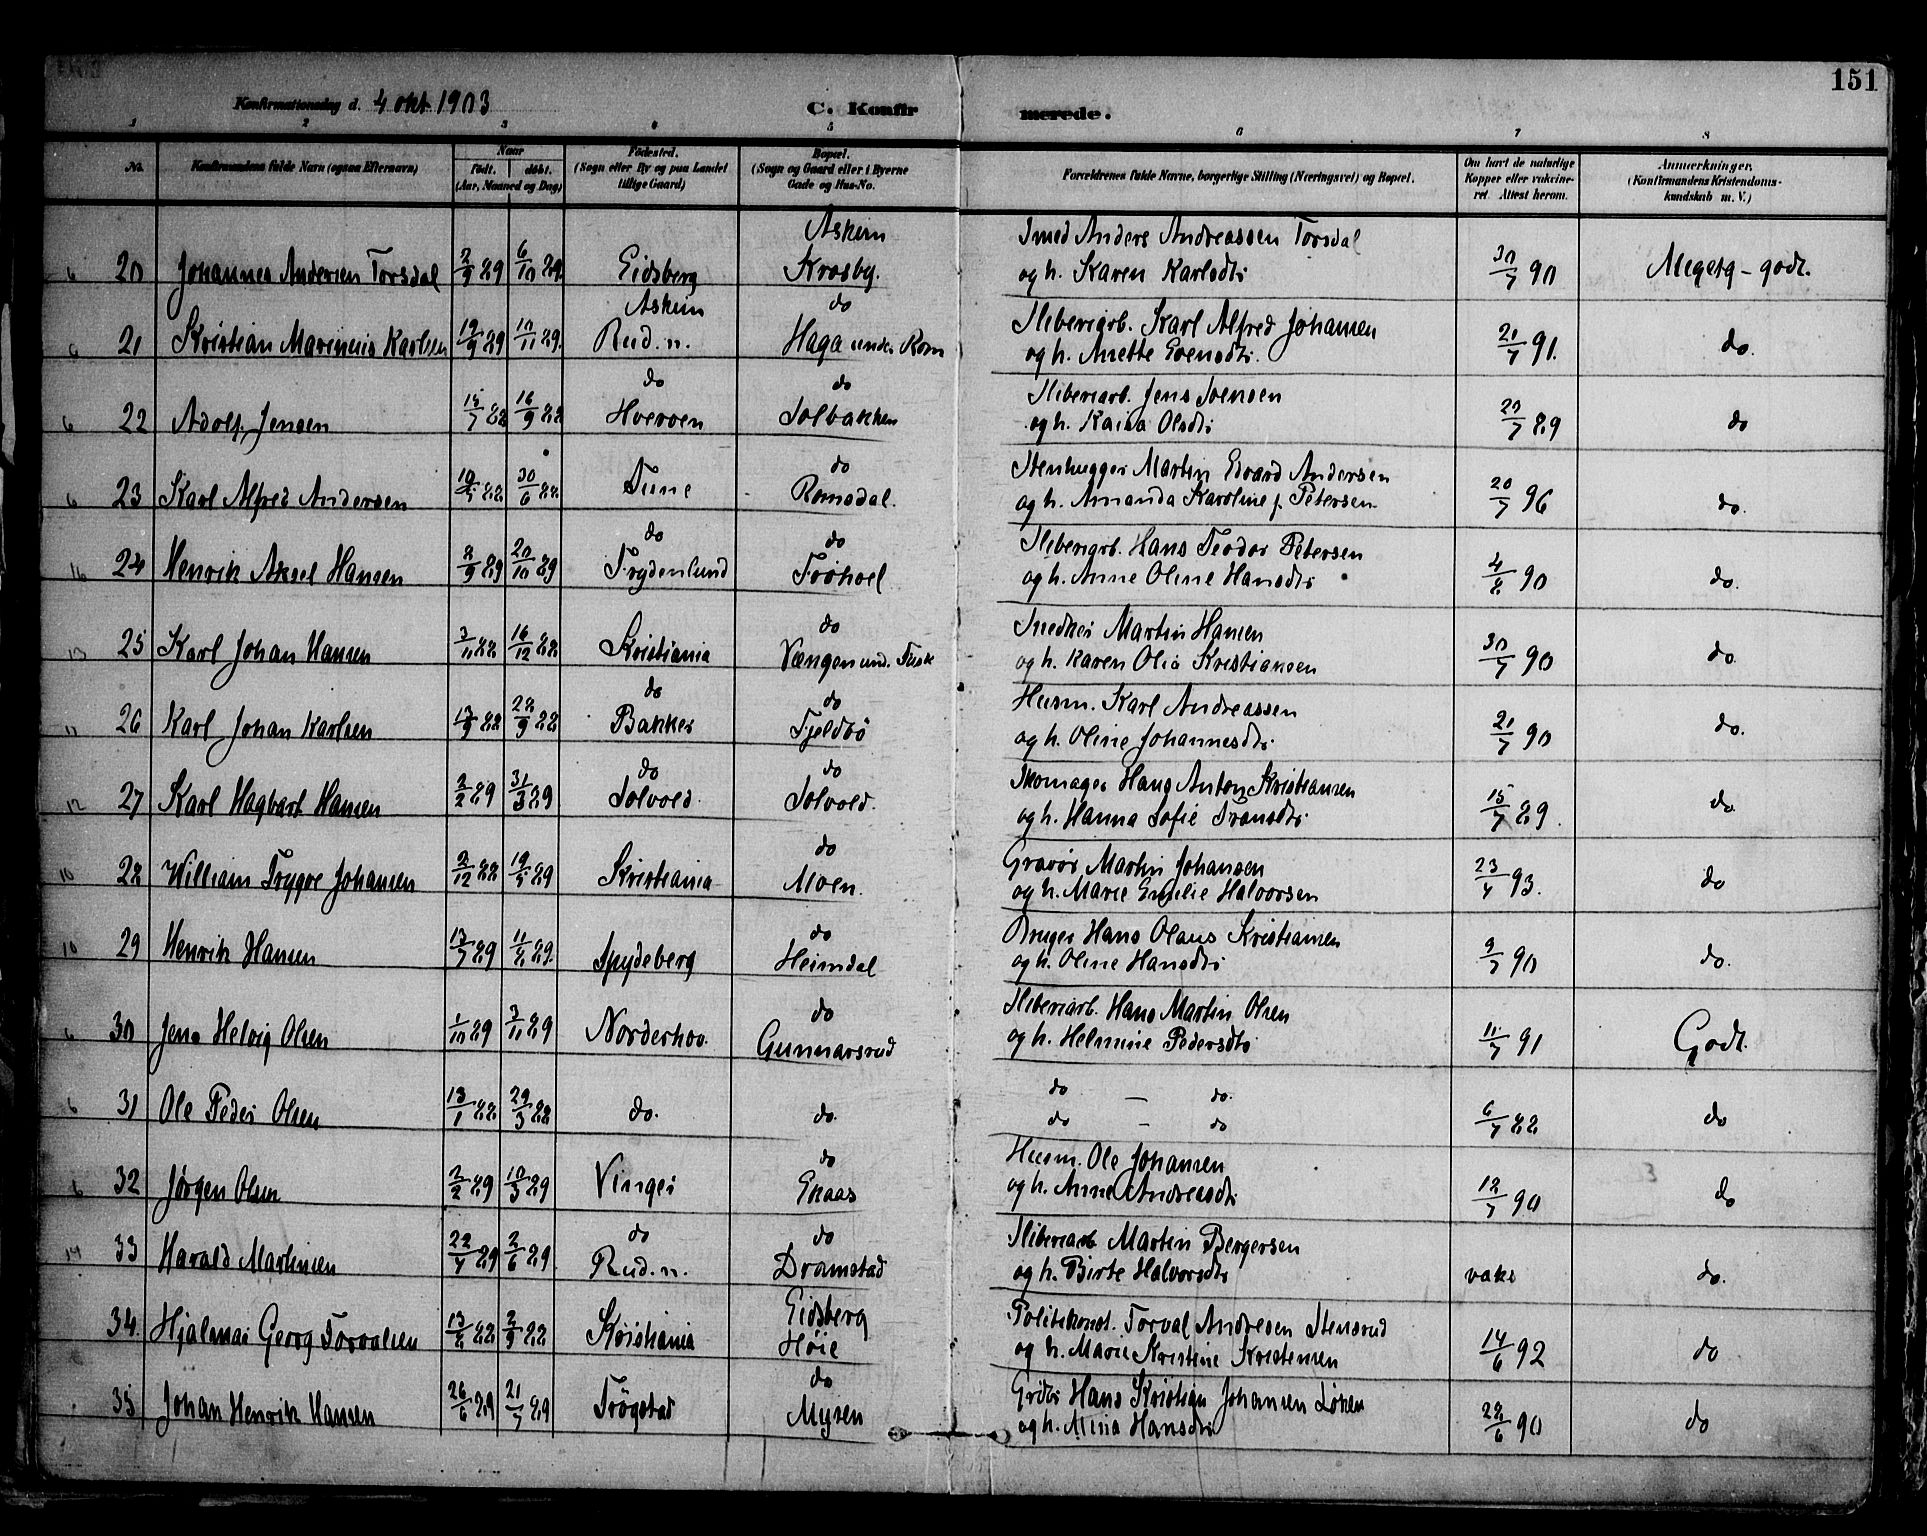 151
Konfirmationsdag d. 4 okt 1903
C. Konfirmerede.
1 2 3 4 5 6 7 8
No. Konfirmandens fulde Navn (ogsaa Efternavn) Naar Født. døbt. (Aar, Maaned og Dag) Fødested. (Sogn eller By og paa Landet tillige Gaard) Bopæl. (Sogn og Gaard eller i Byerne Gade og Hus-No. Forældrenes fulde Navne, borgerlige Stilling (Næringsvei) og Bopæl. Om havt de naturlige Kopper eller vaksineret. Attest herom. Anmærkninger. (Konfirmandens Kristendomskundskab m. V.)
Askim Smed Anders Andreassen Torsdal
6 20 Johannes Andersen Torsdal 2/9 89 6/10 89 Eidsberg Krosby. og h. Karen Karlsdtr 30/7 90 Megetg - godt.
Askim do Sliberiarb. Karl Alfred Johansen
6 21 Kristian Marinius Karlsen 19/9 89 10/11 89. Rud. n. Haga under Rom og h. Anette Evensdtr. 21/7 91. do.
do do Sliberiarb. Jens Svensen
6 22 Adolf Jensen 15/7 88 16/9 88 Hverven Solbakken og h. Kaisa Olsdtr 20/7 89 do
do Stenhugger Martin Edvard Andersen
6 23 Karl Alfred Andersen 10/5 88 30/6 88 Tune Romsdal. og h. Amanda Karoline f. Petersen 20/7 96 do.
do do Sliberiarb. Hans Teodor Petersen
16 24 Henrik Aksel Hansen 8/9 89 20/10 89 Frydenlund Frøhoel og h. Anne Oline Hansdtr 4/8 90 do.
do Snedker Martin Hansen
13 25 Karl Johan Hansen 3/11 88 16/12 88 Kristiania Vængen und. Fusk og h. Karen Olia Kristiansen 30/7 90 do.
do do Husm. Karl Andreassen
11 26 Karl Johan Karlsen 13/9 88 28/9 88 Bakker Fjeldbø og h. Oline Johannesdtr. 21/7 90 do.
do do Skomager Hans Anton Kristiansen
12 27 Karl Hagbart Hansen 2/2 89 31/3 89 Solvold. Solvold. og h. Hanna Sofie Fransdtr. 15/7 89. do.
do Gravør Martin Johansen
10 28 William Trygve Johansen 2/12 88 19/5 89 Kristiania Moen. og h. Marie Emilie Halvorsen 23/4 93. do
do Bruger Hans Olaus Kristiansen
10 29 Henrik Hansen 13/7 89 11/8 89. Spydeberg Heimdal og h. Oline Hansdtr 9/7 90 do.
do Sliberiarb. Hans Martin Olsen
6 30 Jens Helvig Olsen 1/10 89 3/11 89 Norderhov. Gunnarsrud og h. Helmine Pedersdtr 11/7 91 Godt.
do — do.
6 31 Ole Peder Olsen 13/1 88. 29/3 88 do. do. do - do 6/7 88 do
do Husm. Ole Johansen
6 32 Jørgen Olsen 2/2 89 10/3 89 Vinger Enaas og h. Anne Andreasdtr 12/7 90 do
do do Sliberiarb Martin Bergersen
14 33 Harald Martinsen 22/4 89 2/6 89. Rud. n. Dramstad og h. Birte Halvorsdtr vaks do.
Eidsberg Politikonst. Torval Andresen Stensrud
34. Hjalmar Georg Torvalsen 13/8 88 2/9 88 Kristiania Høie og h. Marie Kristine Kristensen 14/6 92 do
do Hans Kristian Johansen Løken
35 Johan Henrik Hansen 26/6 89 21/7 89 Trøgstad Mysen og h. Mina Hansdtr 28/6 90 do